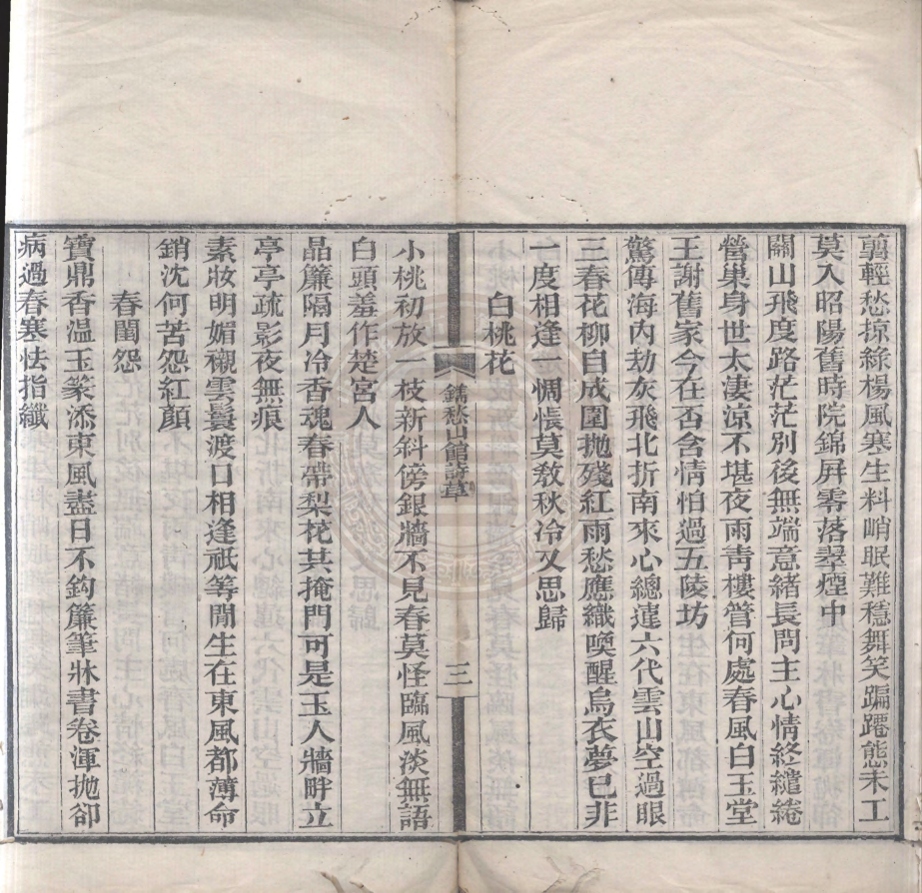 翦輕愁掠綠楊風寒生料峭眠難穩舞笑蹁躚態未工
莫入昭陽舊時院錦屏零落翠煙中
關山飛度路茫茫別後無端意緒長問主心情終繾綣
營巢身世太淒涼不堪夜雨靑樓管何處春風白玉堂
王謝舊家今在否含情怕過五陵坊
驚傳海內劫灰飛北折南來心總違六代雲山空過眼
三春花柳自成圍拋殘紅雨愁應織喚醒烏衣夢已非
一度相逢一惆悵莫敎秋冷又思歸
白桃花
鐫愁山館詩草
三
小桃初放一枝新斜傍銀牆不見春莫怪臨風淡無語
白頭羞作楚宮人
晶簾隔月冷香魂春帶梨花共掩門可是玉人牆畔立
亭亭疏影夜無痕
素妝明媚襯雲鬟渡口相逢祇等閒生在東風都薄命
銷沈何苦怨紅顏
春閨怨
寶鼎香溫玉篆添東風盡日不鈎簾筆牀書卷渾拋卻
病過春寒怯指纖